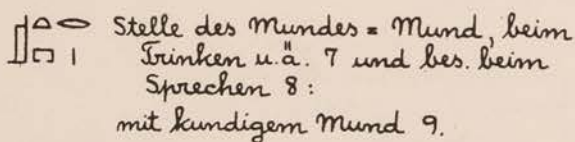 Stelle des Mundes = Mund, beim
Trinken u.ä. 7 und bes. beim
Sprechen 8:
mit kundigem Mund 9.